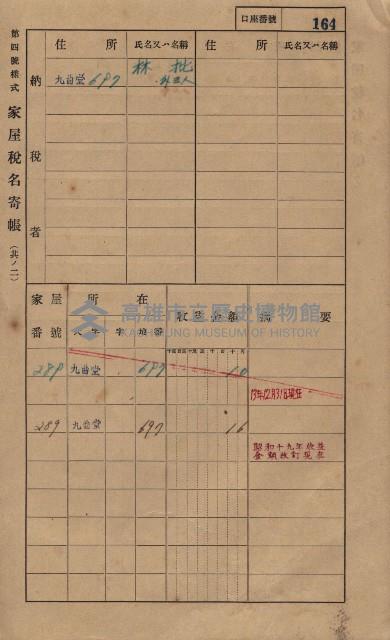 口座番號 164
第四號樣式 家屋稅名寄帳 (其ノ二)
納稅者
住所 氏名又ハ名稱 住所 氏名又ハ名稱
九曲堂 697 林 批
外三人
家屋番號 所在 大字 字 地番 摘要
高雄市立歷史博物館
KAOHSIUNG MUSEUM OF HISTORY
289 九曲堂 697 10
13年12月31日現在
289 九曲堂 697 16
昭和十九年
金額改訂現在